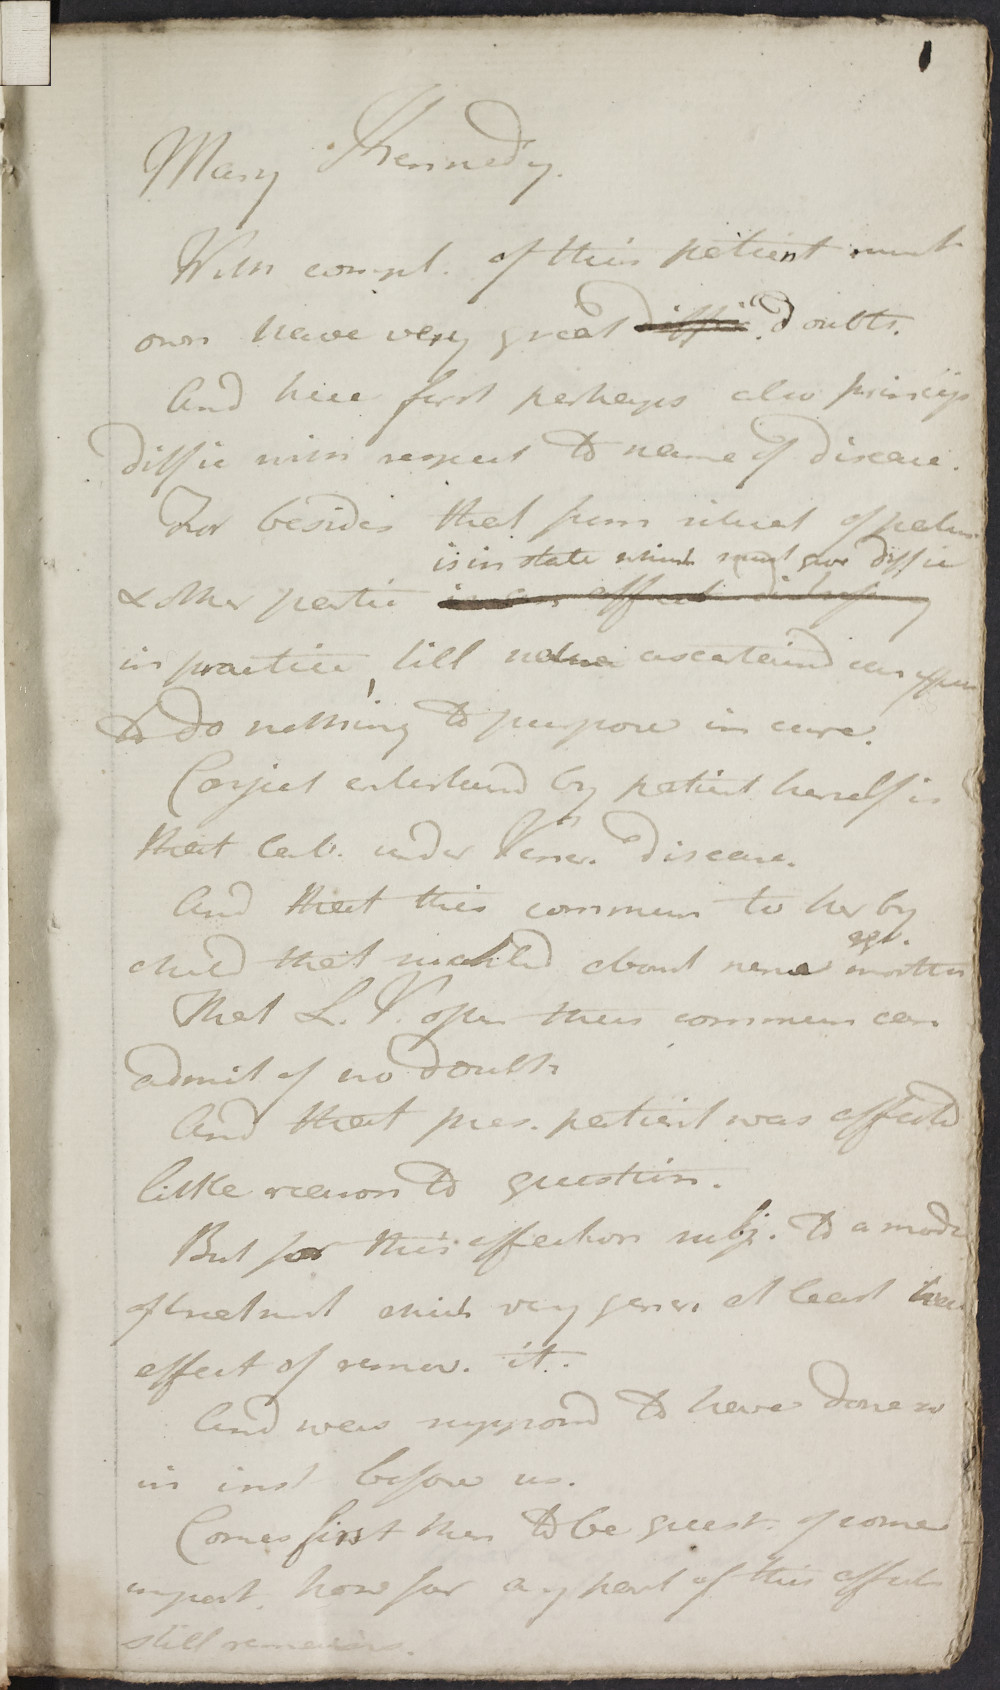 1
Mary Kennedy.
With compl. of this patient must
own have very great diffic. doubts.
And here first perhaps also princip
diffic with respect to name of disease.
For besides that from situat of patien
is in state which must give diffic
& other partic
in practice, till name ascertaind can often
to do nothing to purpose in cure.
Conject entertaind by patient herself is
that lab. under Vener. disease.
And that this commun to her by
ago.
child that suckled about nine months
That L. V. often thus commun can
admit of no doubt
And that pres. patient was affected
little reason to question.
But for this affection subj. to a mode
of treatment which very gener. at least has
effect of remov. it.
And was supposd to have done so
in inst before us.
Comes first then to be quest. of some
import. how far any part of this affect
still remains.